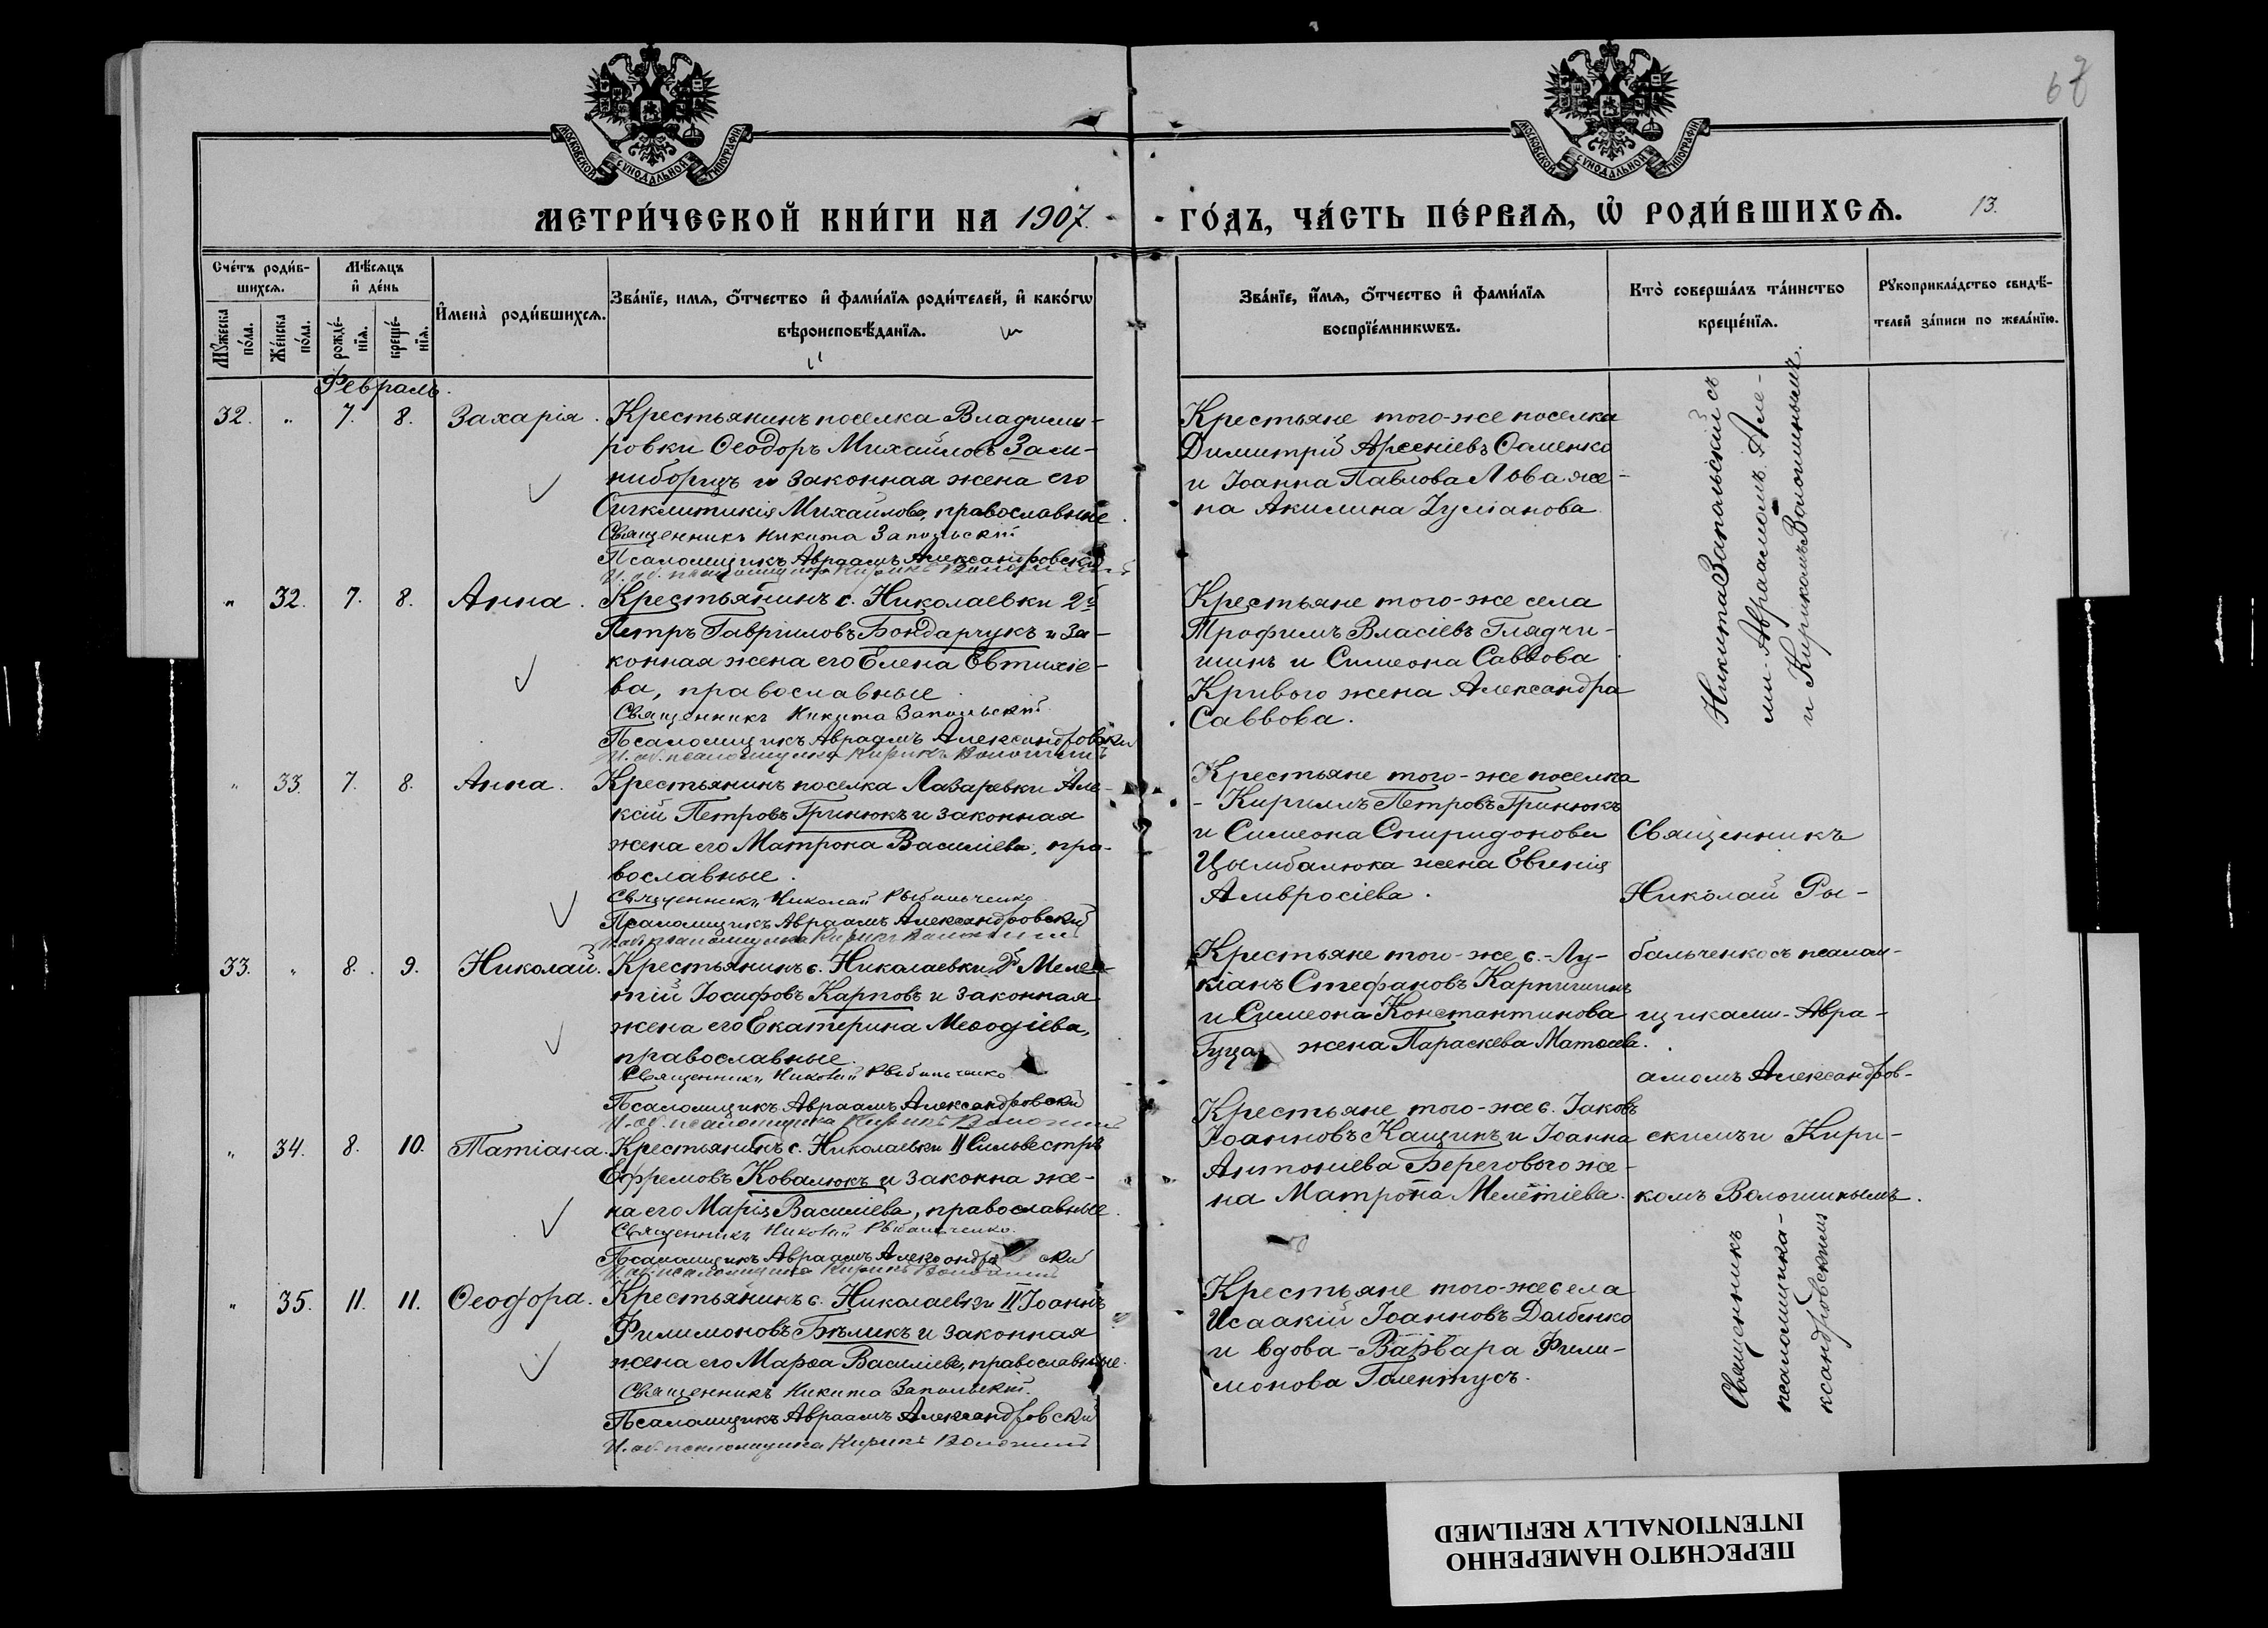 67
МОСКОВСКОЙ СУНОДАЛЬНОЙ ТИПОГРАФІИ
МОСКОВСКОЙ СУНОДАЛЬНОЙ ТИПОГРАФІИ
МЕТРИ́ЧЕСКОЙ КНИ́ГИ НА 1907. ГО́ДЪ, ЧА́СТЬ ПЕ́РВАѦ, Ѡ҆ РОДИ́ВШИХСѦ. 13.
Сче́тъ роди́в-
шихсѧ.
Мꙋ́жеска по́ла.
Же́нска по́ла.
Мѣ́сѧцъ
и҆ де́нь
рожде́-
нїѧ.
креще́-
нїѧ.
И҆мена̀ роди́вшихсѧ.
Зва́нїе, имѧ, ѻ҆́тчество и҆ фами́лїѧ роди́телей, и҆ како́гѡ
вѣроисповѣ́данїѧ.
Зва́нїе, и҆́мѧ, ѻ҆́тчество и҆ фами́лїѧ
воспрїе́мникѡвъ.
Кто̀ соверша́лъ та́инство
креще́нїѧ.
Рꙋкоприкла́дство свидѣ́-
телей за́писи по жела́нїю.
Февраль.
32. " 7. 8. Захарія. Крестьянинъ поселка Владими-
ровки Ѳеодоръ Михайловъ Зам-
ниборщъ и законная жена его
Сигклитикія Михайлова, православные.
Священникъ Никита Запольскій
Псаломщикъ Авраамъ Александровскій
И. об. псаломщика Кирикъ Волошинъ
Крестьяне того-же поселка
Димитрій Арсеніевъ Осменко
и Іоанна Павлова Лова же-
на Акилина Іуліанова
" 32. 7. 8. Анна. Крестьянинъ с. Николаевки 2й
Петръ Гавріиловъ Бондарчукъ и за-
конная жена его Елена Евтихіе-
ва, православные.
Священникъ Никита Запольскій
Псаломщикъ Авраамъ Александровскій
И. об. псаломщика Кирикъ Волошинъ
Крестьяне того-же села
Трофимъ Власіевъ Глядчи-
шинъ и Симеона Саввова
Кривого жена Александра
Саввова.
Никита Запольскій съ
ми-Авраамомъ Але-
и Кирикомъ Волошинымъ.
" 33. 7. 8. Анна. Крестьянинъ поселка Лазаревки Але-
ксій Петровъ Гринюкъ и законная
жена его Матрона Василіева, пра-
вославные.
Священникъ Николай Рыбальченко
Псаломщикъ Авраамъ Александровскій
И. об. псаломщика Кирикъ Волошинъ
Крестьяне того-же поселка
- Кириллъ Петровъ Гринюкъ
и Симеона Спиридонова
Цымбалюка жена Евгенія
Амвросіева.
33. " 8. 9. Николай. Крестьянинъ с. Николаевки 2й Меле-
тій Іосифовъ Карповъ и законная
жена его Екатерина Меѳодіева,
православные.
Священникъ Николай Рыбальченко
Псаломщикъ Авраамъ Александровскій
И. об. псаломщика Кирикъ Волошинъ
Крестьяне того-же с.-Лу-
кіанъ Стефановъ Карпишинъ
и Симеона Константинова
Гуца жена Параскева Матѳеева.
" 34. 8. 10. Татіана. Крестьянинъ с. Николаевки II Сильвестръ
Ефремовъ Ковалюкъ и законна же-
на его Марія Василіева, православные.
Священникъ Николай Рыбальченко
Псаломщикъ Авраамъ Александровскій
И. об. псаломщика Кирикъ Волошинъ
Крестьяне того-же с. Іаковъ
Іоанновъ Кащикъ и Іоанна
Антоніева Берегового же-
на Матрона Мелетіева.
Священникъ
Николай Ры-
бальченко съ псалом-
щиками-Авра-
амомъ Александров-
скимъ и Кири-
комъ Волошинымъ.
" 35. 11. 11. Ѳеодора. Крестьянинъ с. Николаевки II Іоаннъ
Филимоновъ Бѣликъ и законная
жена его Марѳа Василіева, православные.
Священникъ Никита Запольскій.
Псаломщикъ Авраамъ Александровскій
И. об. псаломщика Кирикъ Волошинъ
Крестьяне того-же села
Исаакій Іоанновъ Долбенко
и вдова-Варвара Фили-
монова Галентусъ.
Священникъ
псаломщика-
ксандровскимъ
ПЕРЕСНЯТО НАМЕРЕННО
INTENTIONALLY REFILMED